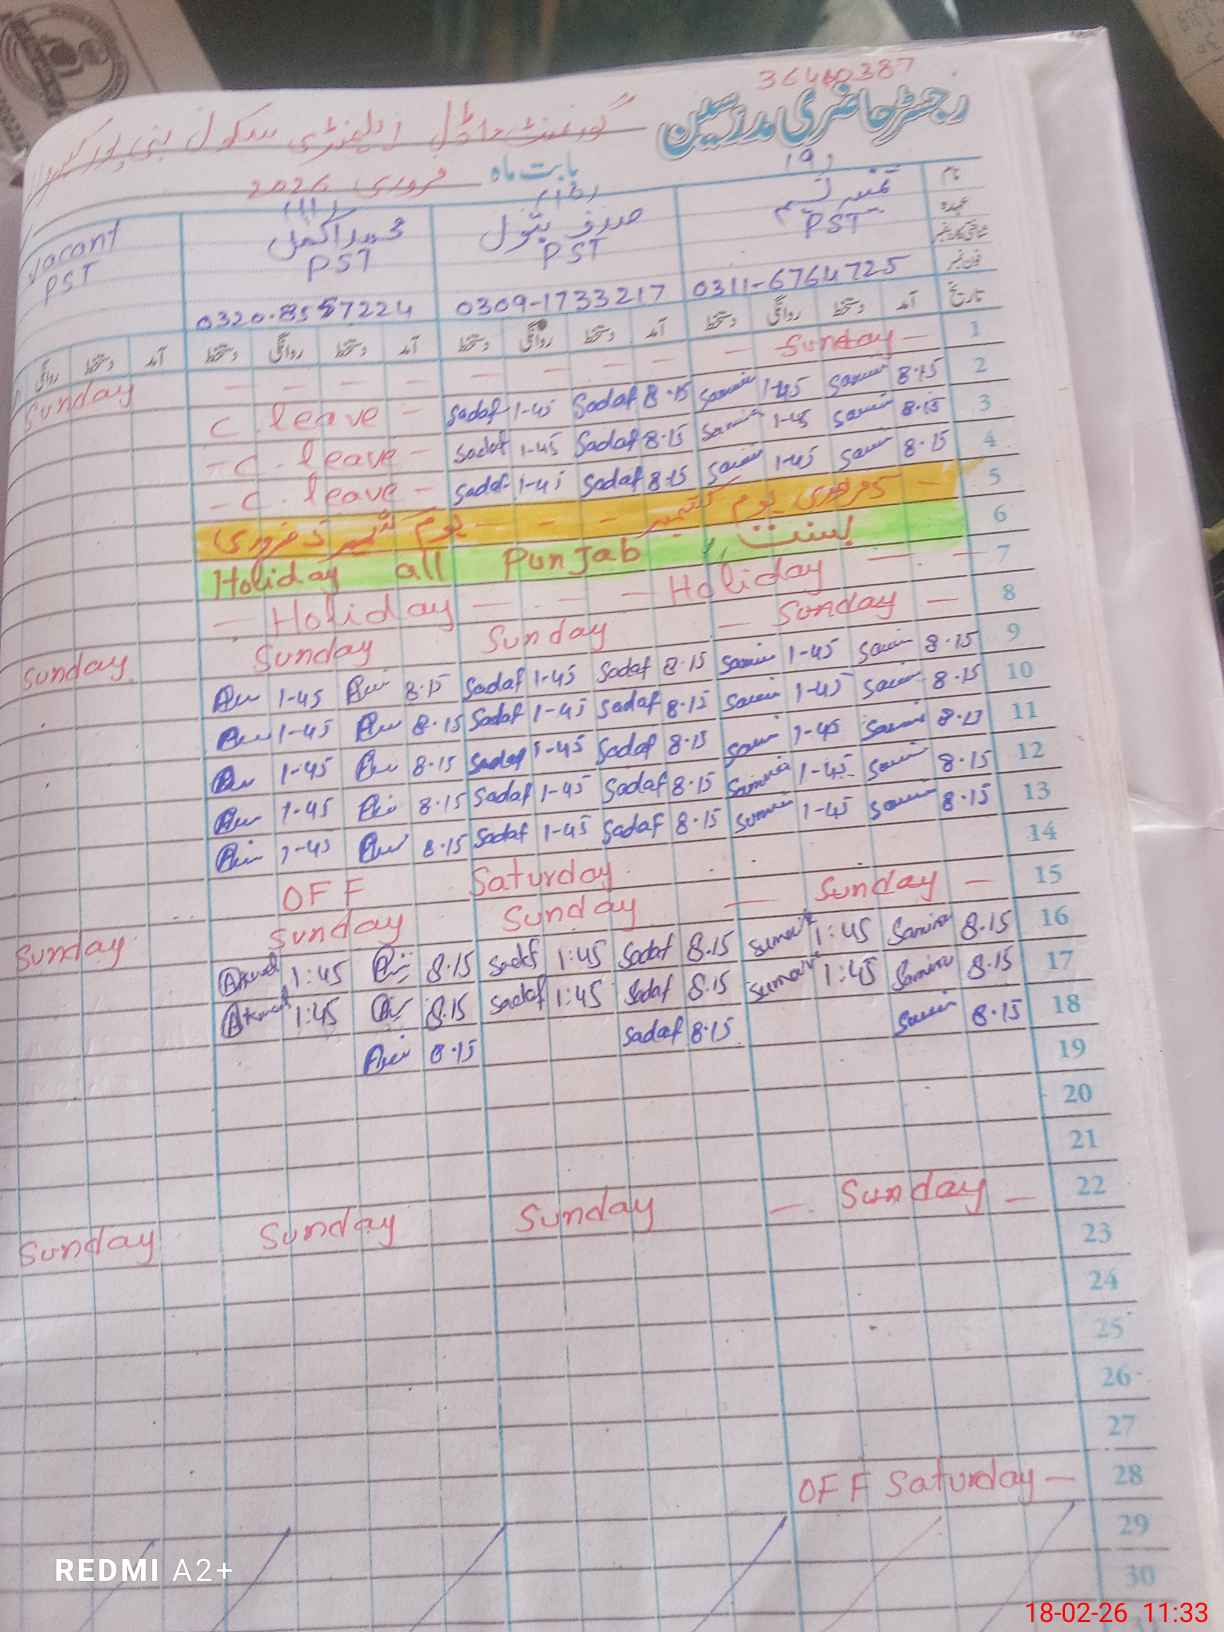 36440387
رجسٹر حاضری مدرسین
گورنمنٹ ماڈل ایلیمنٹری سکول
بابت ماہ فروری 2026
نام (9) (10) صدف بتول (11) محمد اکمل Vacant
عہدہ PST PST PST PST
شناختی کارڈ نمبر
فون نمبر 0311-6764725 0309-1733217 0320-8557224
تاریخ آمد دستخط روانگی دستخط آمد دستخط روانگی دستخط آمد دستخط روانگی دستخط آمد دستخط روانگی
1 — Sunday — — — — — — — — — Sunday
2 8.15 1-45 Sadaf 8.15 Sadaf 1-45 C. leave —
3 8.15 1-45 Sadaf 8.15 Sadaf 1-45 — C. leave —
4 8.15 1-45 Sadaf 8.15 Sadaf 1-45 — C. leave —
5 فروری یوم کشمیر — — — یوم کشمیر 5 فروری
6 بسنت Holiday all Punjab
7 — — Holiday — — — — Holiday —
8 — Sunday — Sunday Sunday Sunday
9 8.15 1-45 Sadaf 8.15 Sadaf 1-45 8.15 1-45
10 8.15 1-45 Sadaf 8.15 Sadaf 1-45 8.15 1-45
11 8.15 1-45 Sadaf 8.15 Sadaf 1-45 8.15 1-45
12 8.15 1-45 Sadaf 8.15 Sadaf 1-45 8.15 1-45
13 8.15 1-45 Sadaf 8.15 Sadaf 1-45 8.15 1-45
14 OFF Saturday
15 — Sunday — Sunday Sunday Sunday
16 8.15 1:45 Sadaf 8.15 Sadaf 1:45 8.15 1:45 Akmal
17 8.15 1:45 Sadaf 8.15 Sadaf 1:45 8.15 1:45 Akmal
18 8.15 Sadaf 8.15 8.15
19
20
21
22 — Sunday — Sunday Sunday Sunday
23
24
25
26
27
28 OFF Saturday —
29
30
REDMI A2+
18-02-26 11:33